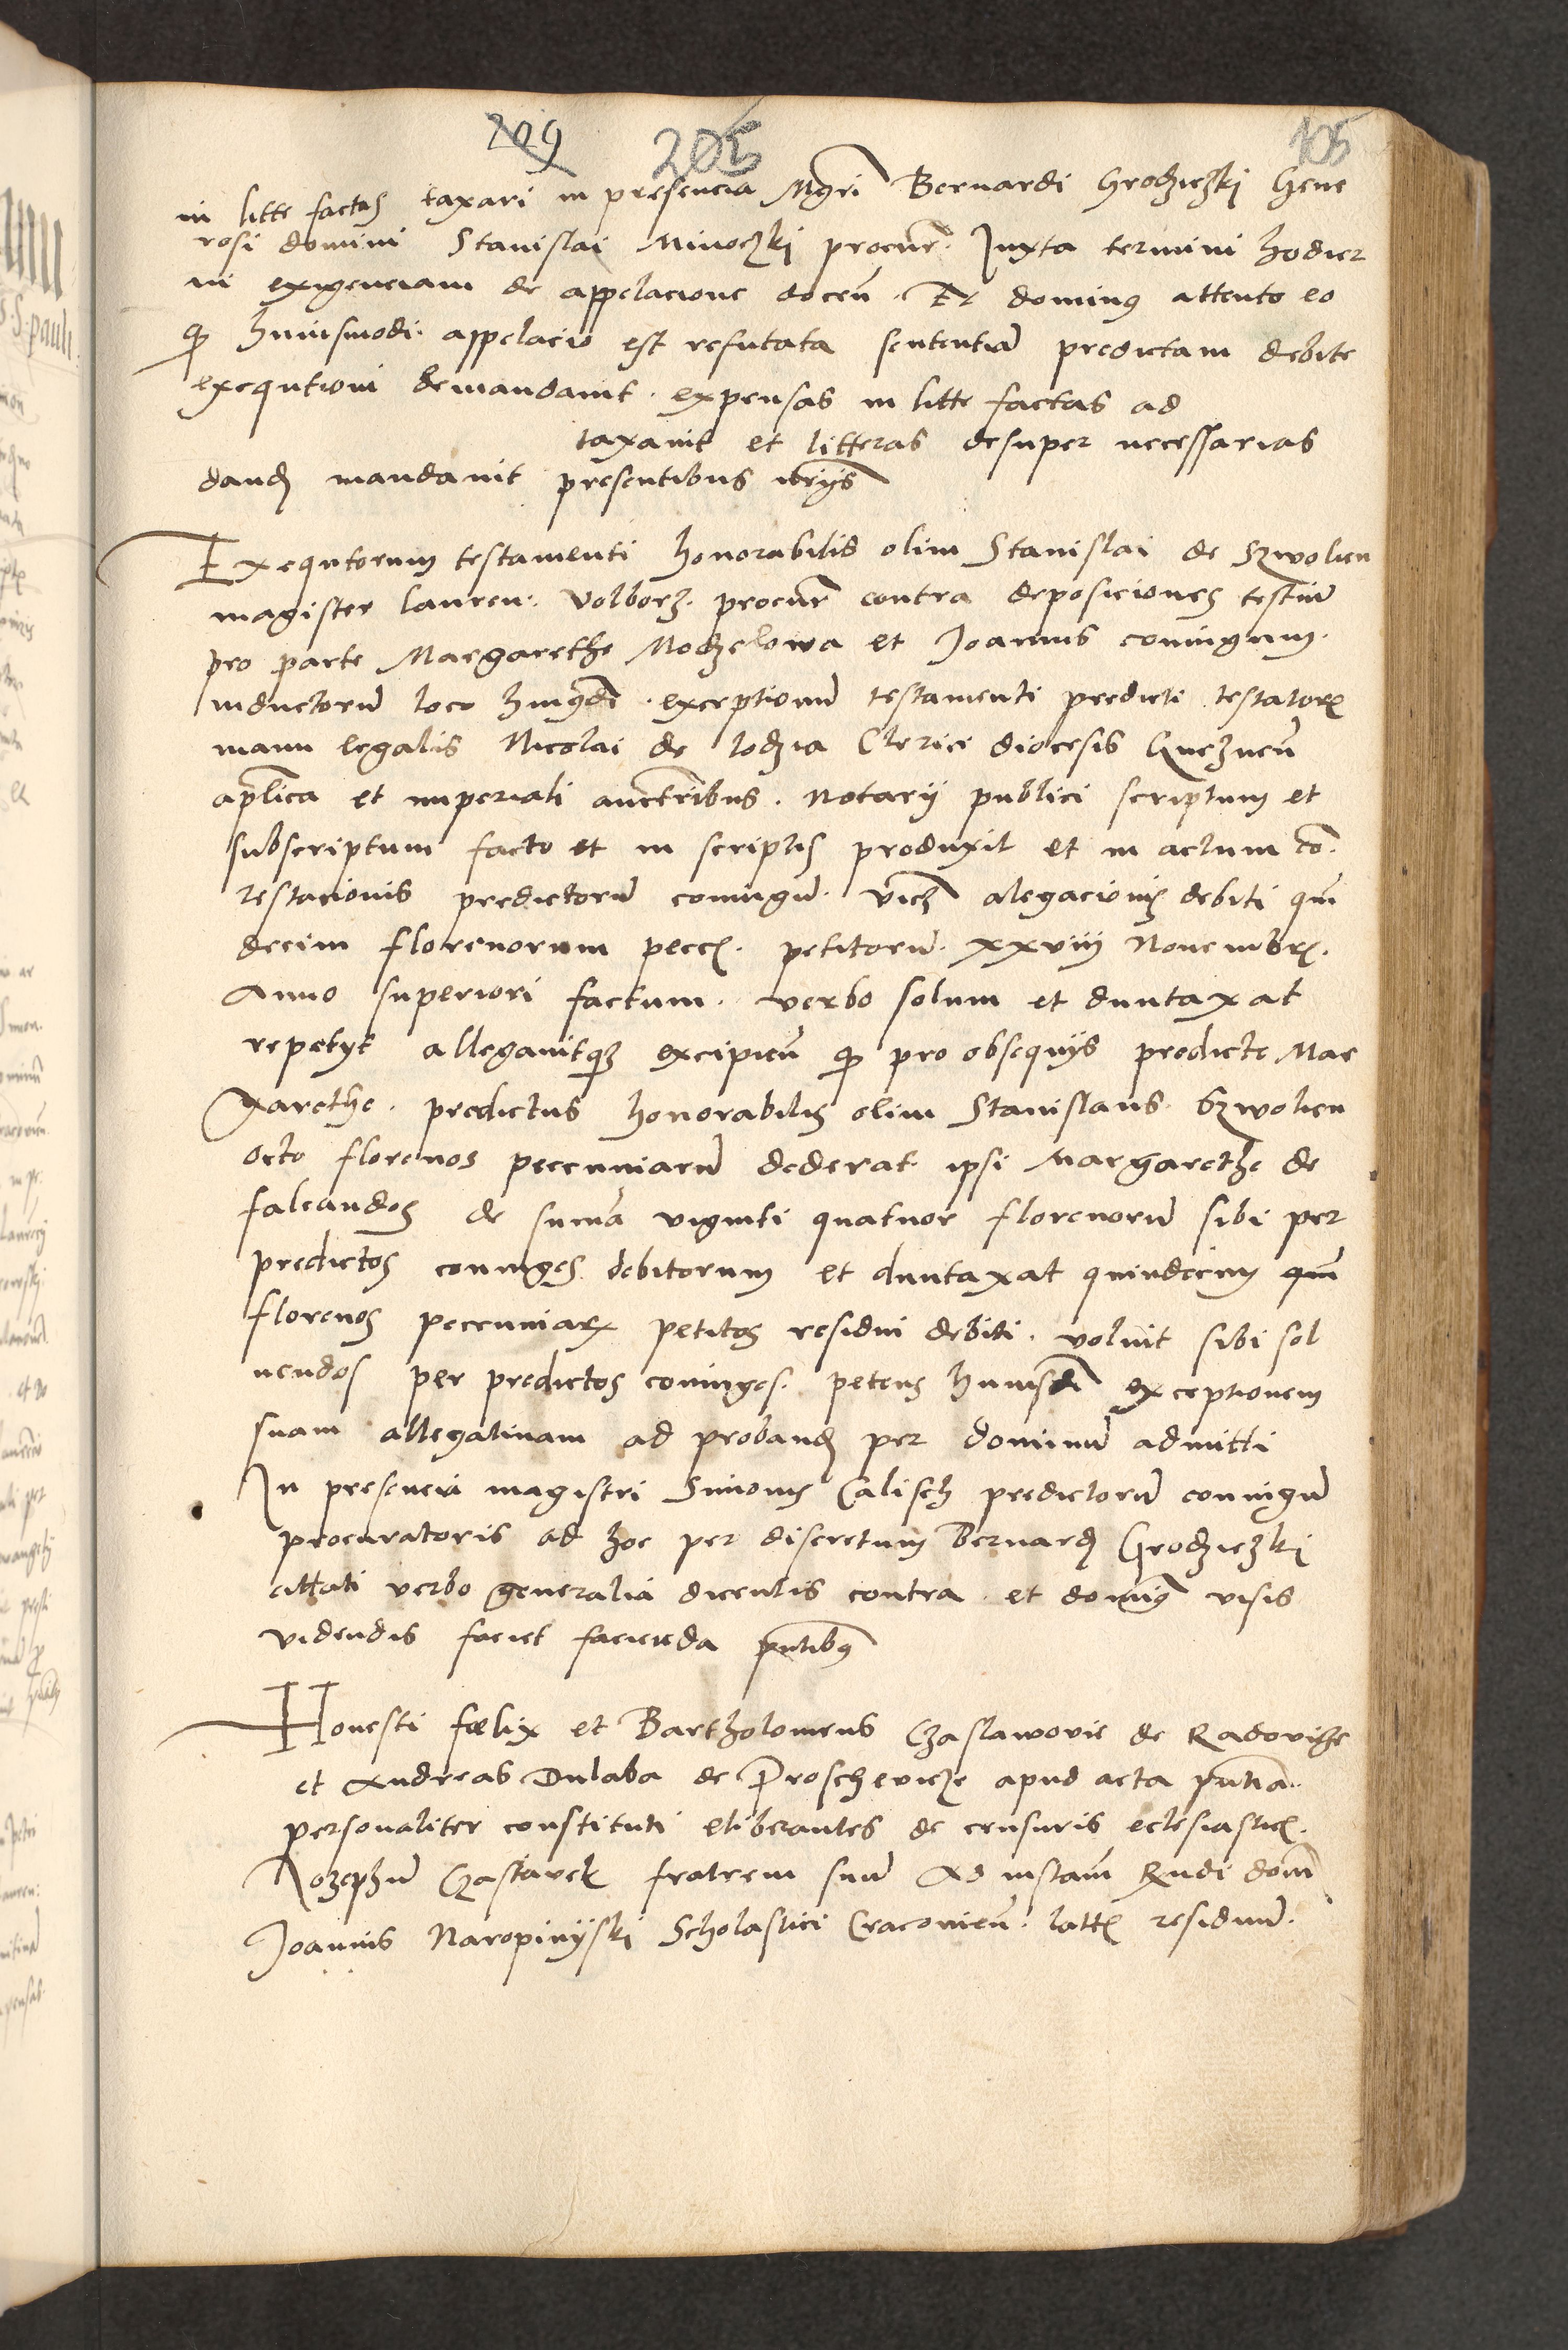 209 205 105
in litte factas taxari in presencia Mgri Bernardi Grodziczki Gene
rosi domini Stanislai Minoczki procur. Juxta termini hodier
ni exigenciam de appelacione docen. Et dominus attento eo
qp huiusmodi appelacio est refutata sententiam predictam debite
exequtioni demandavit. expensas in litte factas ad
taxavit et litteras desuper necessarias
dand mandavit presentibus
Exequtorum testamenti honorabilis olim Stanislai de Szwolien
magister Lauren. Volborz. procur contra deposiciones testium
pro parte Margarethe Modzelowa et Joannis coniugum.
inductorum loco huiusdi exceptionum testamenti predicti testatoris
manu legalis Nicolai de lodzia Clerici diocesis Gneznen
aplica et imperiali auctoritatibus. Notarii publici scriptum et
subscriptum facto et in scriptis produxit et in actum con
testacionis predictorum coniugum. alegacionis debiti quin
decim florenorum pecc. petitorum. xxviii Novembr.
Anno superiori factum. verbo solum et duntaxat
repetyt allegavitque excipien qp pro obsequiis predicte Mar
garethe. predictus honorabilis olim Stanislaus Szwolien
octo florenos peccuniarum dederat ipsi Margarethe de
falcandos de summa viginti quatuor florenorum sibi per
predictos coniuges debitorum et duntaxat quindecim quin
florenos peccuniarum petitos residui debiti. voluit sibi sol
vendos per predictos coniuges. petens huiusdi exceptionem
suam allegativam ad proband per dominum admitti
In presencia magistri Simonis Calisch predictorum coniugum
procuratoris ad hoc per discretum Bernard Grodziczki
cittati verbo generalia dicentis contra et dominus visis
videndis faciet facienda pntibus
Honesti foelix et Bartholomeus Czaslawovic de Radovicze
et Andreas Dulaba de Proschevicze apud acta pntia.
personaliter constituti eliberantes de censuris eclesiastic.
Jozephum Czaslavek fratrem suum Ad instam Rndi domi
Joannis Naropinijski Scholastici Cracovien. latt residuum.